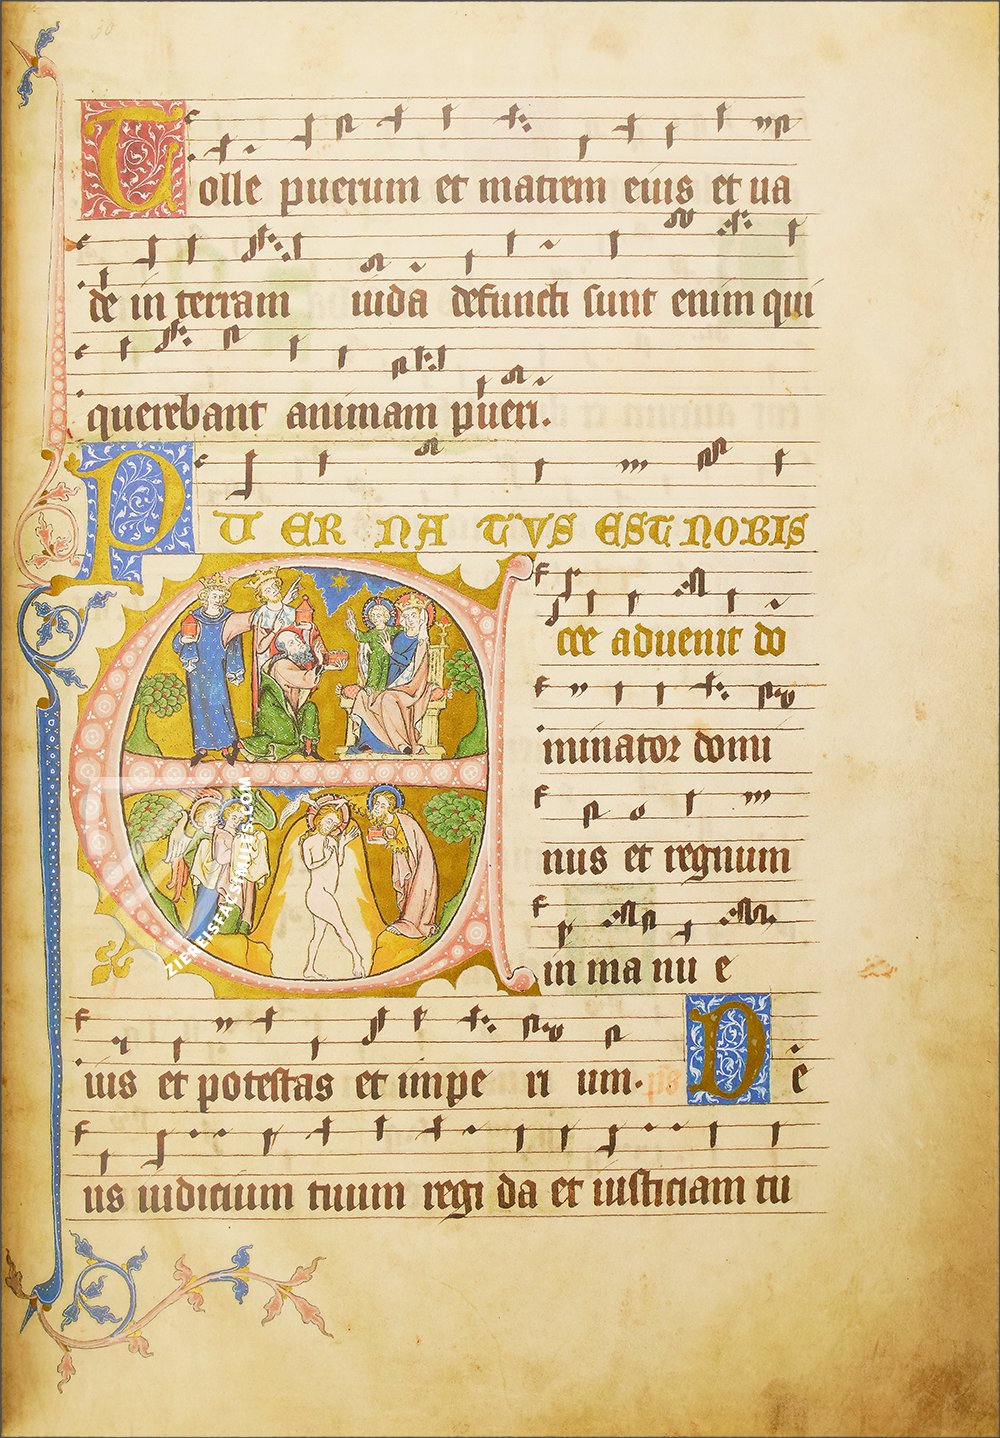 30
Tolle puerum et matrem eius et ua
de in terram iuda defuncti sunt enim qui
querebant animam pueri.
PU ER NA TVS EST NOBIS
Ecce aduenit do
minator domi
nus et regnum
in ma nu e
ius et potestas et impe ri um. ps De
us iudicium tuum regi da et iusticiam tu
ZIEREISFACSIMILES.COM